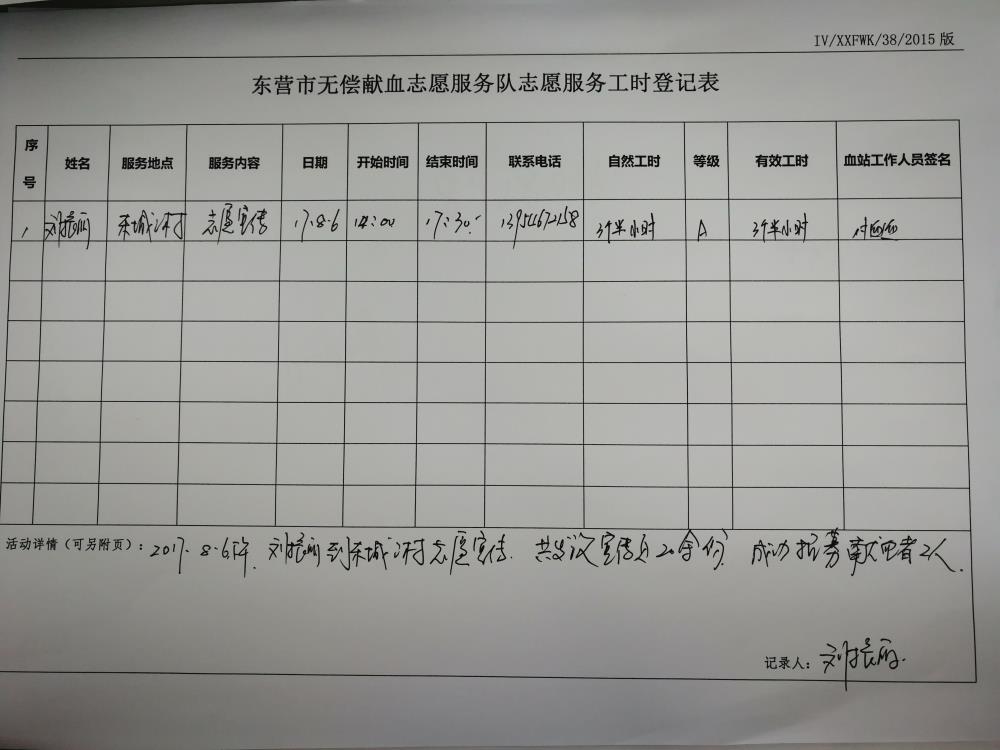 IV/XXFWK/38/2015 版
东营市无偿献血志愿服务队志愿服务工时登记表
序号 姓名 服务地点 服务内容 日期 开始时间 结束时间 联系电话 自然工时 等级 有效工时 血站工作人员签名
1 刘振丽 东城 村 志愿宣传 17.8.6 14:00 17:30 3个半小时 A 3个半小时
活动详情（可另附页）: 2017.8.6下午 刘振丽到东城 村志愿宣传. 共发 宣传 20余份 成功招募献血者2人.
记录人: 刘振丽.